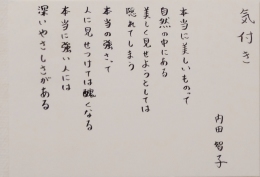 気付き
内田 智子
本当に美しいものって
自然の中にある
美しく見せようとしては
隠れてしまう
本当の強さって
人に見せつけては醜くなる
本当に強い人には
深いやさしさがある